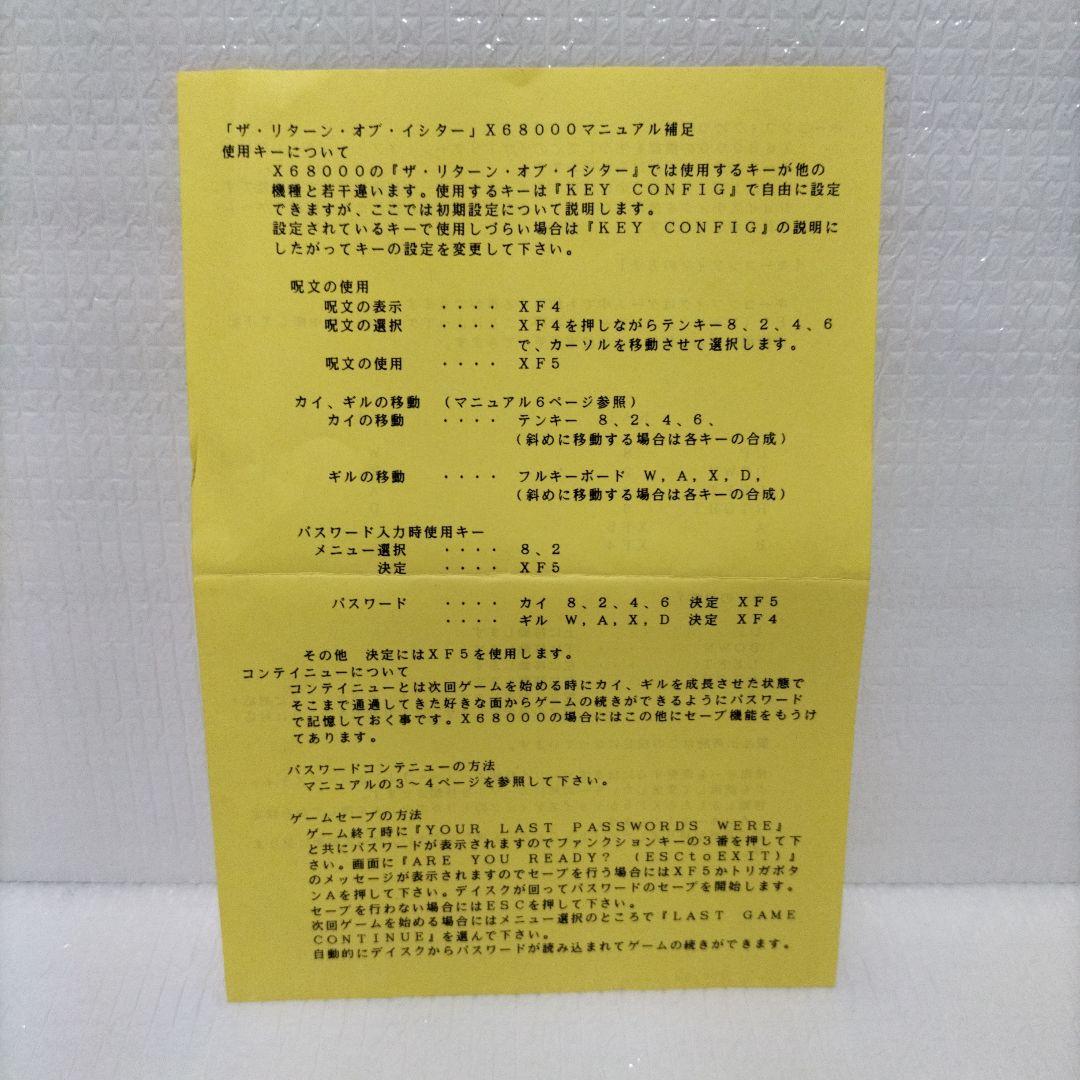 「ザ・リターン・オブ・イシター」X68000マニュアル補足
使用キーについて
X68000の『ザ・リターン・オブ・イシター』では使用するキーが他の
機種と若干違います。使用するキーは『KEY CONFIG』で自由に設定
できますが、ここでは初期設定について説明します。
設定されているキーで使用しづらい場合は『KEY CONFIG』の説明に
したがってキーの設定を変更して下さい。
呪文の使用
呪文の表示 ・・・・ XF4
呪文の選択 ・・・・ XF4を押しながらテンキー8、2、4、6
で、カーソルを移動させて選択します。
呪文の使用 ・・・・ XF5
カイ、ギルの移動 (マニュアル6ページ参照)
カイの移動 ・・・・ テンキー 8、2、4、6、
(斜めに移動する場合は各キーの合成)
ギルの移動 ・・・・ フルキーボード W,A,X,D,
(斜めに移動する場合は各キーの合成)
パスワード入力時使用キー
メニュー選択 ・・・・ 8、2
決定 ・・・・ XF5
パスワード ・・・・ カイ 8、2、4、6 決定 XF5
・・・・ ギル W,A,X,D 決定 XF4
その他 決定にはXF5を使用します。
コンテイニューについて
コンテイニューとは次回ゲームを始める時にカイ、ギルを成長させた状態で
そこまで通過してきた好きな面からゲームの続きができるようにパスワード
で記憶しておく事です。X68000の場合にはこの他にセーブ機能をもうけ
てあります。
パスワードコンテニューの方法
マニュアルの3~4ページを参照して下さい。
ゲームセーブの方法
ゲーム終了時に『YOUR LAST PASSWORDS WERE』
と共にパスワードが表示されますのでファンクションキーの3番を押して下
さい。画面に『ARE YOU READY? (ESCtoEXIT)』
のメッセージが表示されますのでセーブを行う場合にはXF5かトリガボタ
ンAを押して下さい。デイスクが回ってパスワードのセーブを開始します。
セーブを行わない場合にはESCを押して下さい。
次回ゲームを始める場合にはメニュー選択のところで『LAST GAME
CONTINUE』を選んで下さい。
自動的にデイスクからパスワードが読み込まれてゲームの続きができます。